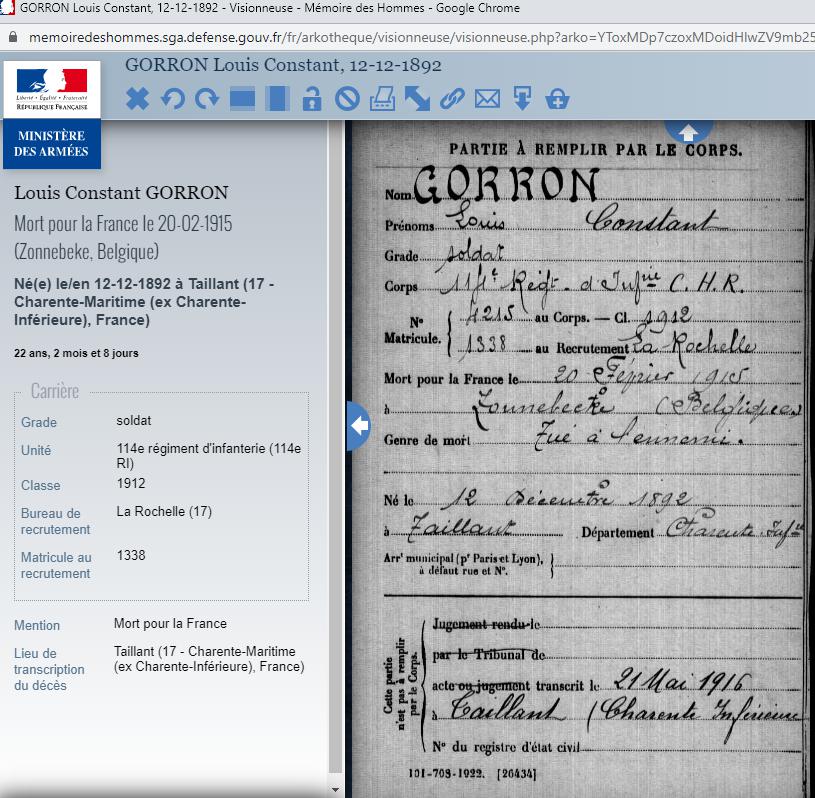 GORRON Louis Constant, 12-12-1892 - Visionneuse - Mémoire des Hommes - Google Chrome
memoiredeshommes.sga.defense.gouv.fr/fr/arkotheque/visionneuse/visionneuse.php?arko=YToxMDp7czoxMDoidHlwZV9mb25
GORRON Louis Constant, 12-12-1892
Liberté • Égalité • Fraternité
RÉPUBLIQUE FRANÇAISE
MINISTÈRE
DES ARMÉES
Louis Constant GORRON
Mort pour la France le 20-02-1915
(Zonnebeke, Belgique)
Né(e) le/en 12-12-1892 à Taillant (17 -
Charente-Maritime (ex Charente-
Inférieure), France)
22 ans, 2 mois et 8 jours
Carrière
Grade soldat
Unité 114e régiment d'infanterie (114e
RI)
Classe 1912
Bureau de La Rochelle (17)
recrutement
Matricule au 1338
recrutement
Mention Mort pour la France
Lieu de Taillant (17 - Charente-Maritime
transcription (ex Charente-Inférieure), France)
du décès
PARTIE À REMPLIR PAR LE CORPS.
Nom GORRON
Prénoms Louis Constant
Grade soldat
Corps 114e Régt. d'Infrie C. H. R.
No Matricule. 4215 au Corps. — Cl. 1912
1338 au Recrutement La Rochelle
Mort pour la France le 20 Février 1915
à Zonnebecke (Belgique)
Genre de mort Tué à l'ennemi.
Né le 12 Décembre 1892
à Taillant Département Charente Infre
Arrt municipal (pr Paris et Lyon),
à défaut rue et No.
Cette partie
n'est pas à remplir
par le Corps.
Jugement rendu le
par le Tribunal de
acte ou jugement transcrit le 21 Mai 1916
à Taillant (Charente Inférieure
No du registre d'état civil
101-708-1922. [26434]